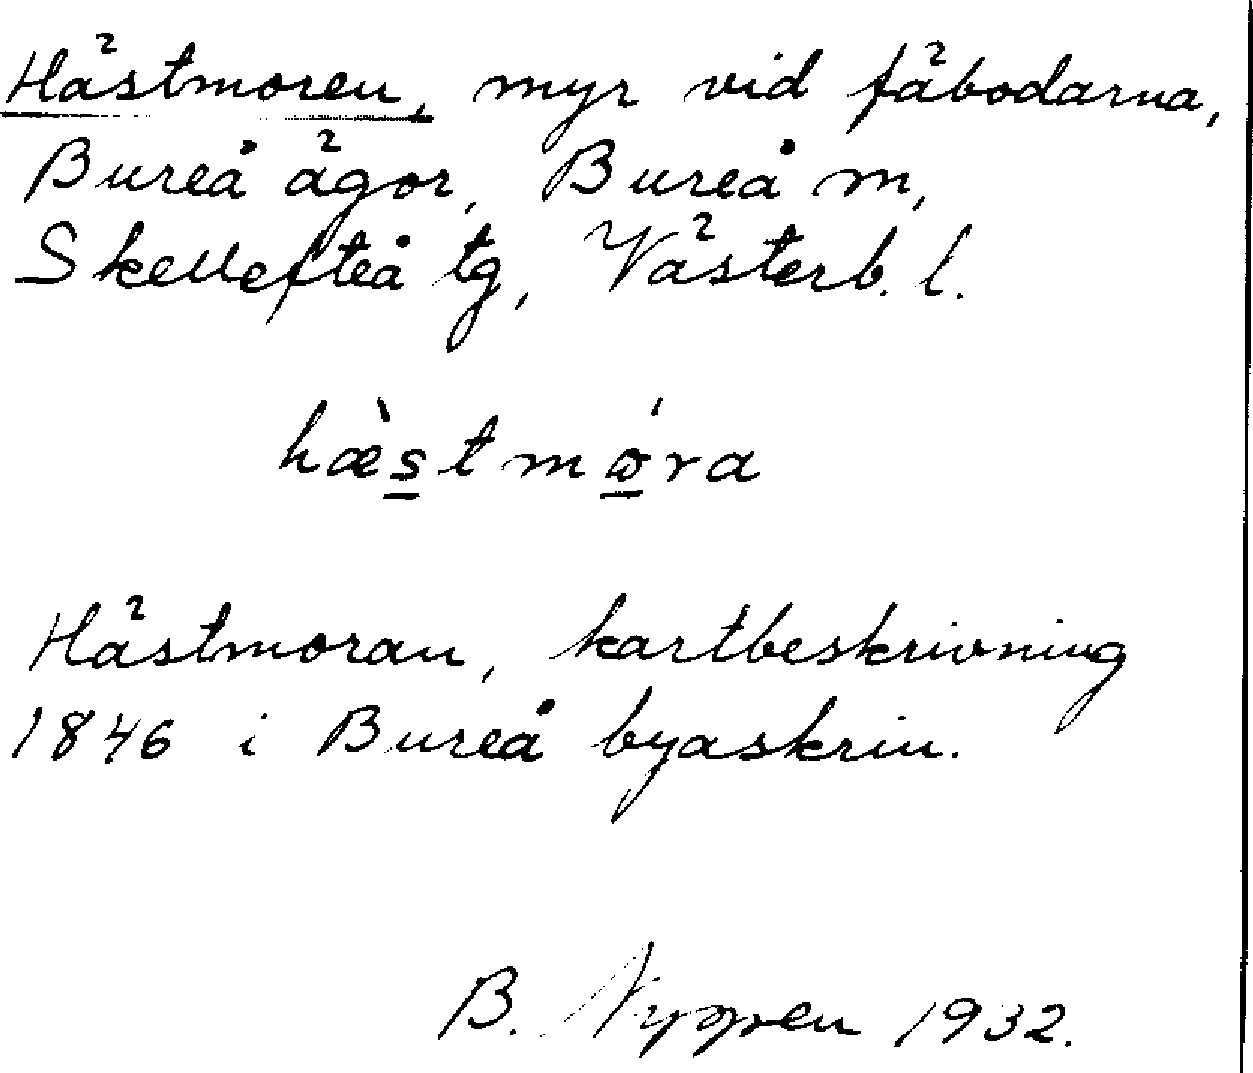 Hästmoren, myr vid fäbodarna,
Bureå ägor, Bureå m,
Skellefteå tg, Västerb. l.
hæ̀stmǿra
Hästmoran, kartbeskrivning
1846 i Bureå byaskrin.
B. Nygren 1932.